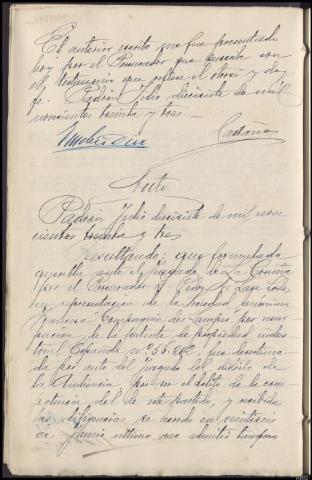 El anterior escrito que fue presentado
hoy por el Procurador que suscribe con
el testimonio que refiere el otrosí y doy
fe. Padrón Julio diecisiete de mil
novecientos treinta y tres —
Auto
Padrón Julio diecisiete de mil nove
cientos treinta y tres
Resultando: que formulada
querella ante el juzgado de La Coruña
por el Procurador D. Pedro
en representación de la Sociedad anónima
francesa "Compagnie des Lampes" por usur
pación de la patente de propiedad indus
trial Española nº 55.262, fue desestima
da por auto del juzgado del distrito de
la Audiencia por no el delito de la com
petencia del de este partido, y recibidas
las diligencias se acordó en veintiseis
de Junio último no admitir tampoco